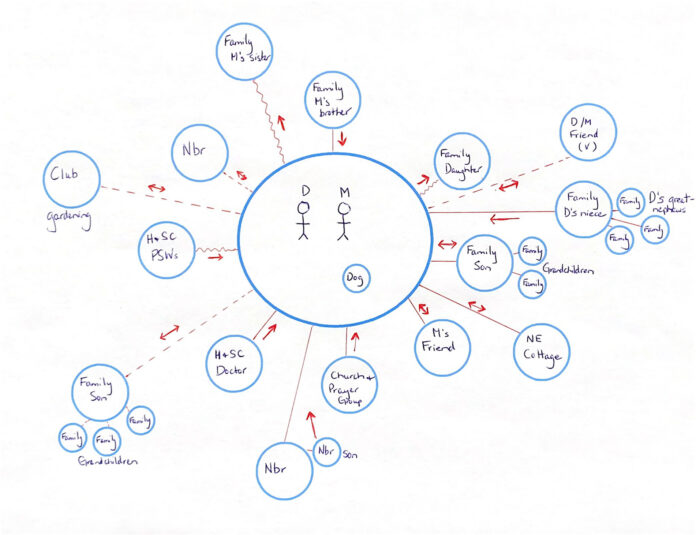 Family
M's sister
Family
M's
brother
D/M
Friend
(V)
Nbr
Family
Daughter
Club
gardening
D M
Family
D's niece
Family
Family
Family
D's great-
nephews
H+SC
PSWs
Family
Son
Family
Family
Grandchildren
Dog
H+SC
Doctor
M's
Friend
NE
Cottage
Church+
Prayer
Group
Family
Son
Family
Family
Family
Grandchildren
Nbr
Nbr
Son